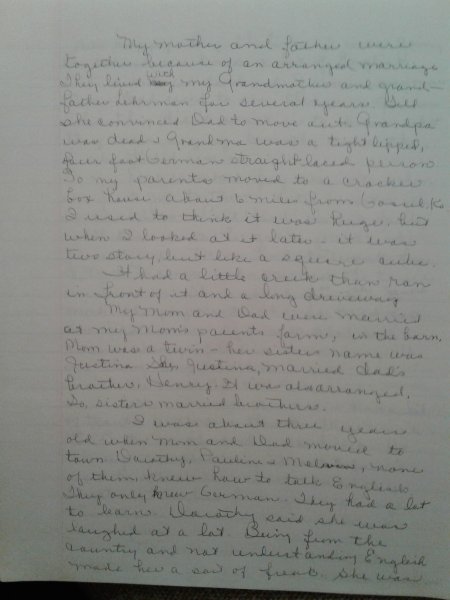 My mother and father were
together because of an arranged marriage
They lived with my Grandmother and grand-
father Lehrman for several years. Till
she convinced Dad to move out. Grandpa
was dead & Grandma was a tight lipped,
four foot German straight laced person
So my parents moved to a cracker
box house about 6 miles from Goessel, Ks
I used to think it was huge, but
when I looked at it later - it was
two story, but like a square cube.
It had a little creek than ran
in front of it and a long driveway
My Mom and Dad were married
at my Mom's parents farm, in the barn.
Mom was a twin - her sisters name was
Justina. Justina, married dad's
brother, Henry. It was also arranged.
So, sisters married brothers.
I was about three years
old when Mom and Dad moved to
town. Dorothy, Pauline & Melvin, none
of them knew how to talk English
They only knew German. They had a lot
to learn. Dorothy said she was
laughed at a lot. Being from the
country and not understanding English
made her a sort of freak. She was